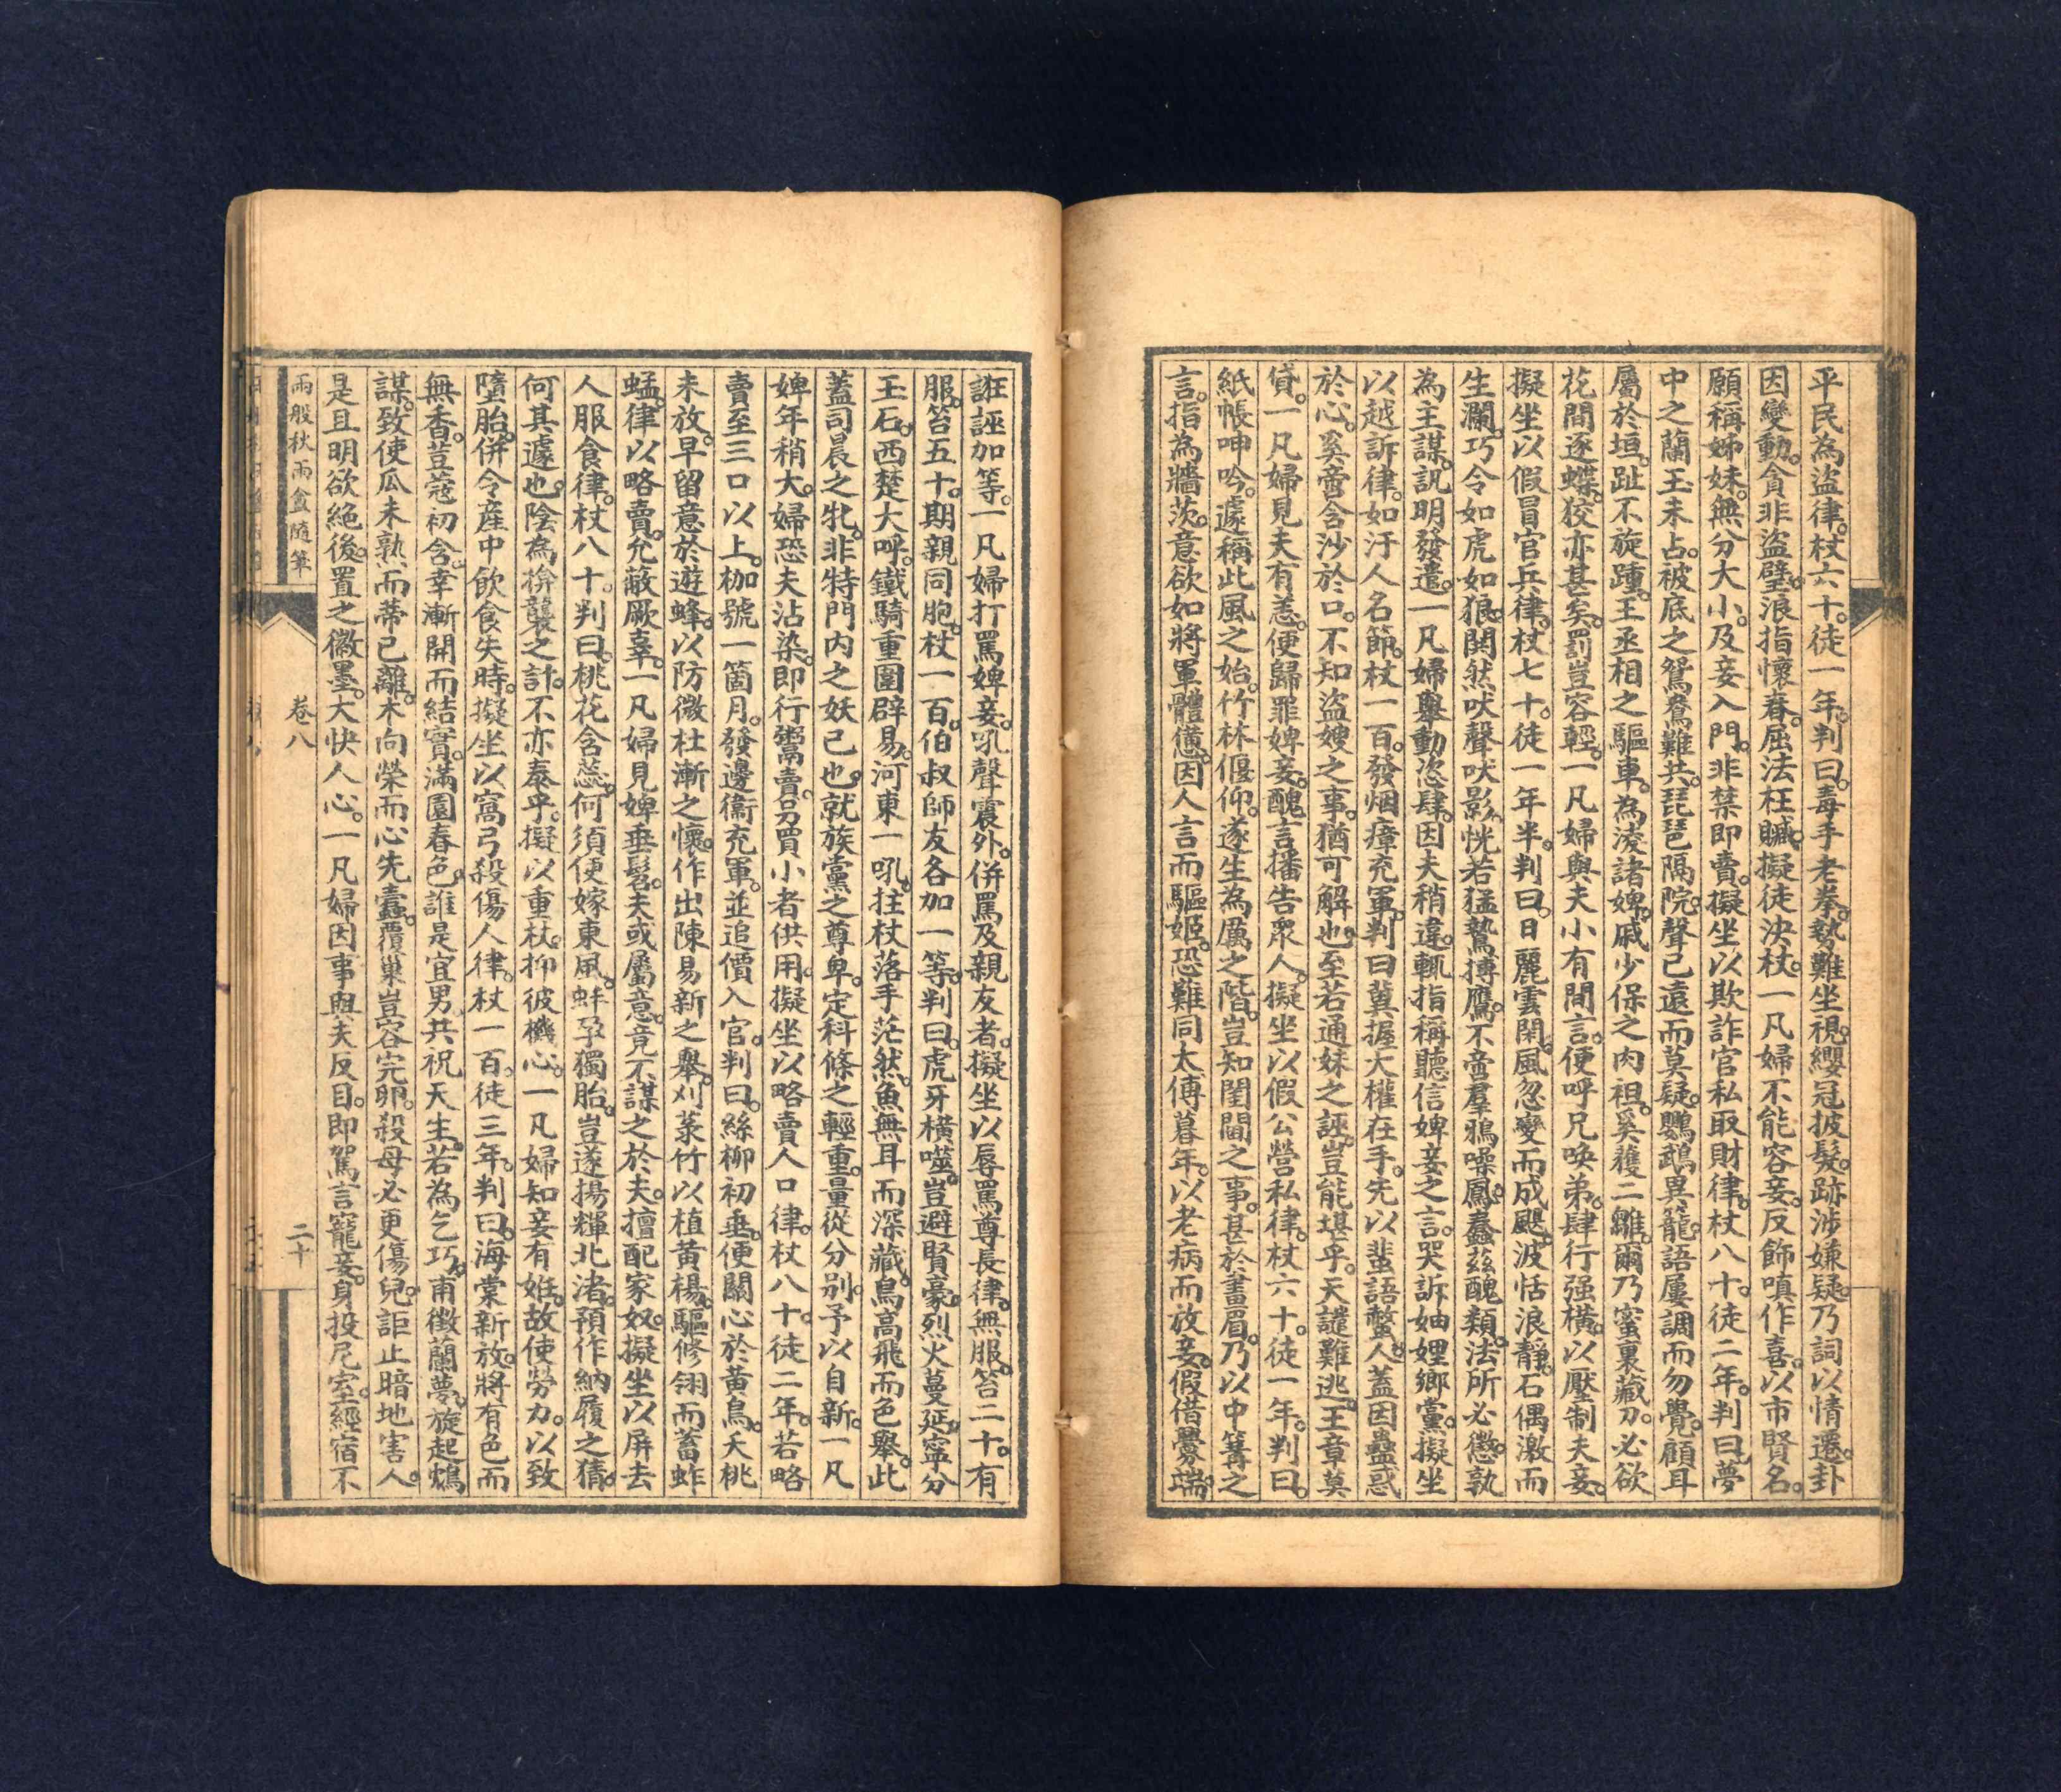 平民為盜律。杖六十。徒一年。判曰。毒手老拳。勢難坐視。纓冠披髮。跡涉嫌疑。乃詞以情遷。卦
因變動。貪非盜璧。浪指懷春。屈法枉贓。擬徒決杖。一凡婦不能容妾。反飾嗔作喜。以市賢名。
願稱姊妹。無分大小。及妾入門。非禁即賣。擬坐以欺詐官私取財律。杖八十。徒二年。判曰。夢
中之蘭玉未占。被底之鴛鴦難共。琵琶隔院。聲已遠而莫疑。鸚鵡異籠。語屢調而勿覺。顧耳
屬於垣。趾不旋踵。王丞相之驅車。為淩諸婢。戚少保之肉袒。奚蘀二雛。爾乃蜜裏藏刀。必欲
花間逐蝶。狡亦甚矣。罰豈容輕。一凡婦與夫小有間言。便呼兄喚弟。肆行强橫。以壓制夫妾。
擬坐以假冒官兵律。杖七十。徒一年半。判曰。日麗雲閑。風忽變而成颶。波恬浪靜。石偶激而
生瀾。巧令如虎如狼。鬨然吠聲吠影。恍若猛鷙搏鷹。不啻羣鴉噪鳳。蠢茲醜類。法所必懲。孰
為主謀。訊明發遣。一凡婦舉動恣肆。因夫稍違。輒指稱聽信婢妾之言。哭訴妯娌鄉黨。擬坐
以越訴律。如汙人名節。杖一百。發烟瘴充軍。判曰冀握大權在手。先以蜚語螫人。蓋因蠱惑
於心。奚啻含沙於口。不知盜嫂之事。猶可解也。至若通妹之誣。豈能堪乎。天譴難逃。王章莫
貸。一凡婦見夫有恙。便歸罪婢妾。醜言播告眾人。擬坐以假公營私律。杖六十。徒一年。判曰。
紙帳呻吟。遽稱此風之始。竹林偃仰。遂生為厲之階。豈知閨閫之事。甚於畫眉。乃以中篝之
言。指為牆茨。意欲如將軍體憊。因人言而驅姬。恐難同太傅暮年。以老病而放妾。假借釁端。
誑誣加等。一凡婦打罵婢妾。吼聲震外。併罵及親友者。擬坐以辱罵尊長律。無服。笞二十。有
服。笞五十。期親同胞。杖一百。伯叔師友各加一等。判曰。虎牙橫噬。豈避賢豪。烈火蔓延。寧分
玉石。西楚大呼。鐵騎重圍辟易。河東一吼。拄杖落手茫然。魚無耳而深藏。鳥高飛而色舉。此
蓋司晨之牝。非特門內之妖已也。就族黨之尊卑。定科條之輕重。量從分别。予以自新。一凡
婢年稍大。婦恐夫沾染。即行鬻賣。另買小者供用。擬坐以略賣人口律。杖八十。徒二年。若略
賣至三口以上。枷號一箇月。發邊衞充軍。並追價入官。判曰。絲柳初垂。便關心於黃鳥。夭桃
未放。早留意於遊蜂。以防微杜漸之懷。作出陳易新之舉。刈菉竹以植黄楊。驅修翎而蓄蚱
蜢。律以略賣。允蔽厥辜。一凡婦見婢垂髫。夫或屬意。竟不謀之於夫。擅配家奴。擬坐以屏去
人服食律。杖八十。判曰。桃花含蕊。何須便嫁東風。蚌孕獨胎。豈遂揚輝北渚。預作納履之猜。
何其遽也。陰為揜襲之計。不亦泰乎。擬以重杖。抑彼機心。一凡婦知妾有姙。故使勞力。以致
墮胎。併令産中飲食失時。擬坐以窩弓殺傷人律。杖一百。徒三年。判曰。海棠新放。將有色而
無香。荳蔻初含。幸漸開而結實。滿園春色。誰是宜男。共祝天生。若為乞巧。甫徵蘭夢。旋起鴆
謀。致使瓜未熟而蒂已離。木向榮而心先蠹。覆巢豈容完卵。殺母必更傷兒。詎止暗地害人。
是且明欲絶後。置之徽墨。大快人心。一凡婦因事與夫反目。即駕言寵妾。身投尼室。經宿不
兩般秋雨盦隨筆
卷八
二十